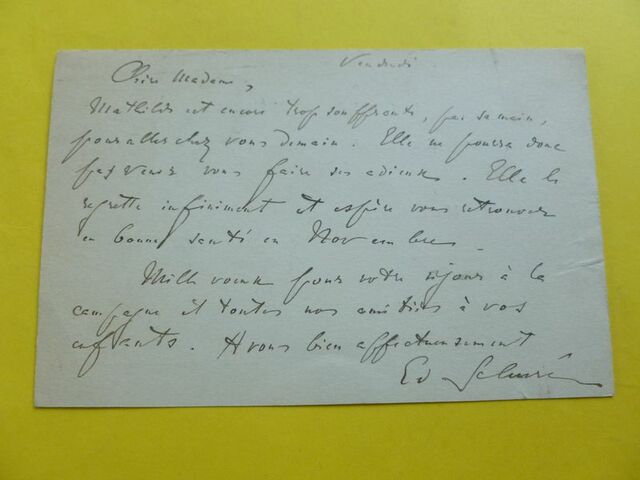 Vendredi
Chère Madame,
Mathilde est encore trop souffrante, par sa main,
pour aller chez vous demain. Elle ne pourra donc
pas venir vous faire ses adieux. Elle le
regrette infiniment et espère vous retrouver
en bonne santé en Novembre.
Mille vœux pour votre séjour à la
campagne et toutes nos amitiés à vos
enfants. A vous bien affectueusement
Ed Schuré